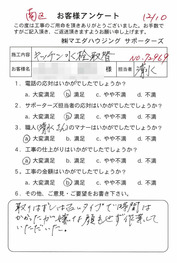 南区 お客様アンケート 12/10
この度は工事のご用命を頂きありがとうございました。お手数で
すがご記入頂き、ご返送頂きますようお願い申し上げます。
㈱マエダハウジング サポーターズ
施工内容 キッチン水栓取替 NO-70969
お客様名 様 担当者 清水
1．電話の応対はいかがでしたでしょうか?
a.大変満足 b.満足 c.やや不満 d.不満
2．サポーターズ担当者の応対はいかがでしたでしょうか?
a.大変満足 b.満足 c.やや不満 d.不満
3．職人(清水さん)のマナーはいかがでしたでしょうか?
a.大変満足 b.満足 c.やや不満 d.不満
4．工事の仕上がりはいかがでしたでしょうか?
a.大変満足 b.満足 c.やや不満 d.不満
5．工事の金額はいかがでしたでしょうか?
a.大変満足 b.満足 c.やや不満 d.不満
6．その他、ご意見、ご要望をお書き下さい。
取りはずしは古いタイプで時間は
かかったが嫌な顔もせず作業して
いただいた。